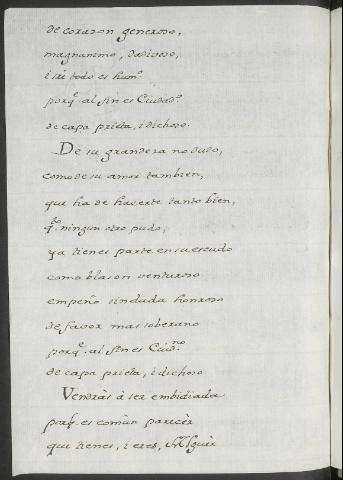 de corazon generoso,
magnanimo, dadivoso,
i si todo es hum.º
porq.e al fin es Ciudad.º
de capa prieta, i dichoso.
De su grandeza no dudo,
como de su amor tambien,
que ha de hacerte tanto bien,
q.to ningun otro pudo,
ya tienes parte en su escudo
como blason venturoso
empeño sin duda honroso
de favor mas soberano
porq.e al fin es Ciud.no
de capa prieta, i dichoso.
Vendràs à ser embidiada
porq.e es comùn parecèr
que tienes, i eres,